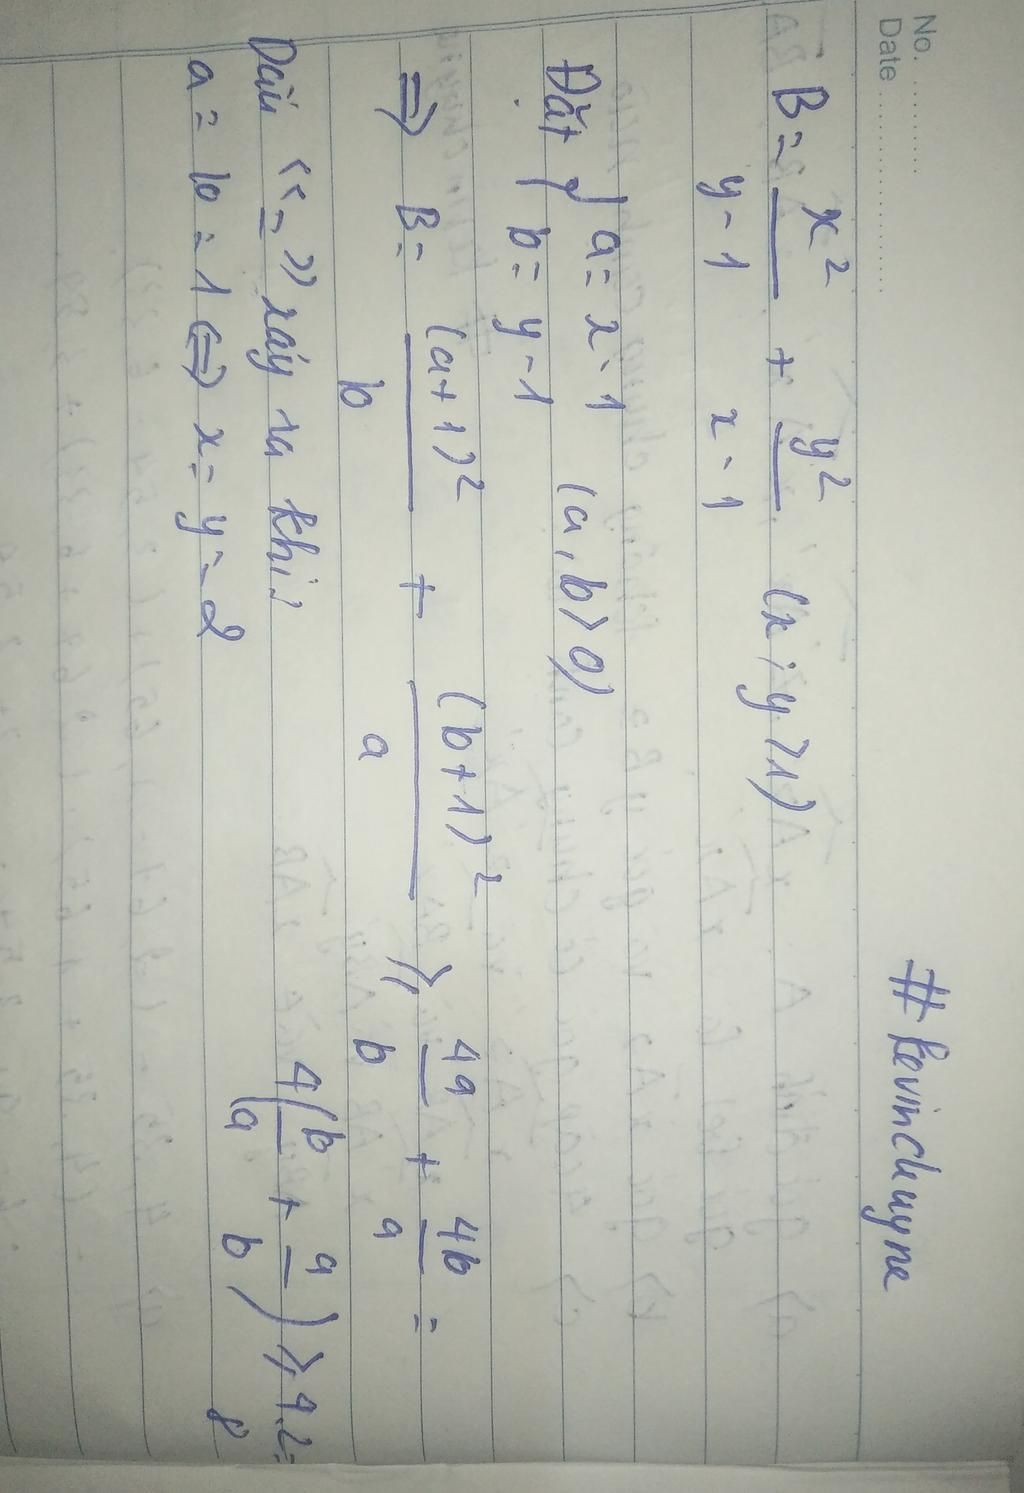 No. ............
Date ........................
#kevinchuyne
B = x²/(y-1) + y²/(x-1) (x; y > 1)
Đặt { a = x-1
b = y-1 (a, b > 0)
=> B = (a+1)²/b + (b+1)²/a ≥ 4a/b + 4b/a =
4(b/a + a/b) ≥ 4.2=
8
Dấu "=" xảy ra khi:
a = b = 1 <=> x = y = 2